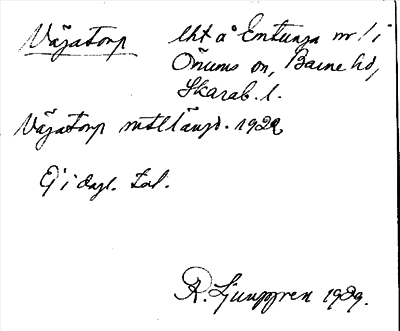 Väjatorp lht å Emtunga nr 1 i
Önums sn, Barne hd,
Skarab. l.
Väjatorp mtllängd. 1929
Ej i dagl. tal.
R. Ljunggren 1929.